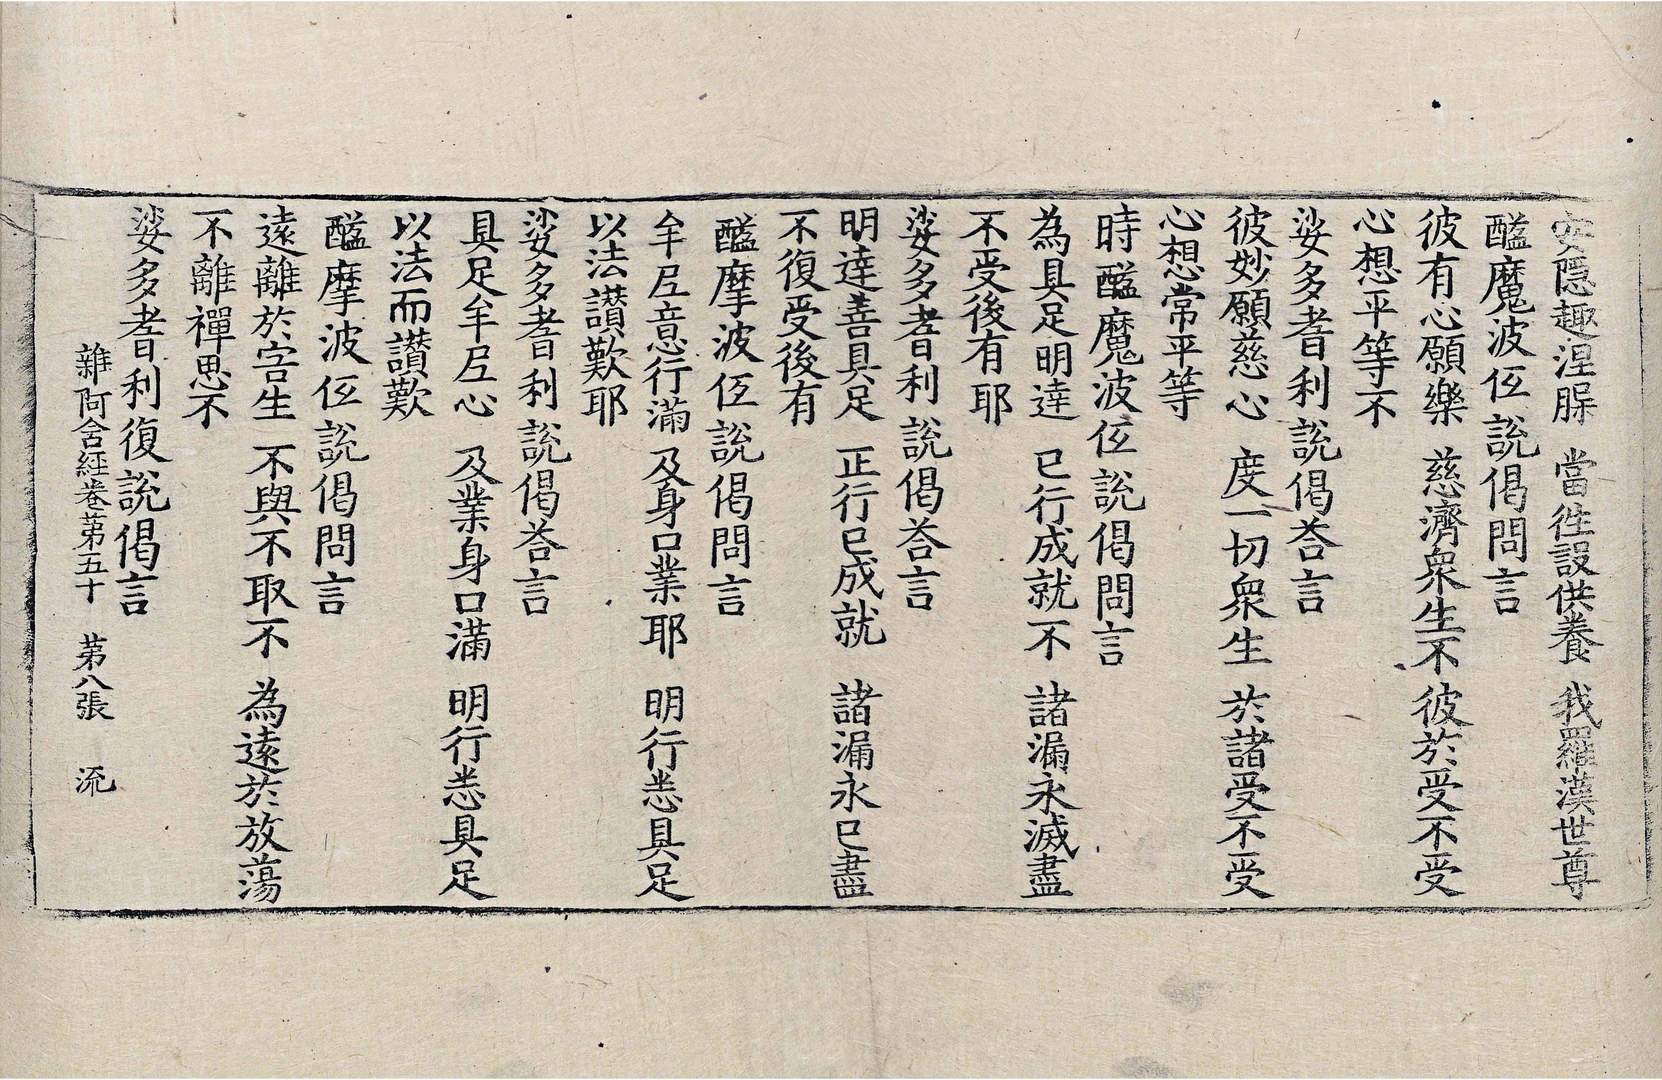 安隱趣涅槃　當徃設供養　我羅漢世尊
醯魔波低說偈問言
彼有心願樂　慈濟衆生不　彼於受不受
心想平等不
娑多耆利說偈荅言
彼妙願慈心　度一切衆生　於諸受不受
心想常平等
時醯魔波低說偈問言
為具足明達　已行成就不　諸漏永滅盡
不受後有耶
娑多耆利說偈荅言
明達善具足　正行已成就　諸漏永已盡
不復受後有
醯摩波低說偈問言
牟尼意行滿　及身口業耶　明行悉具足
以法讃歎耶
娑多耆利說偈荅言
具足牟尼心　及業身口滿　明行悉具足
以法而讃歎
醯摩波低說偈問言
遠離於害生　不與不取不　為遠於放蕩
不離禪思不
娑多耆利復說偈言
雜阿含經卷苐五十　苐八張　流